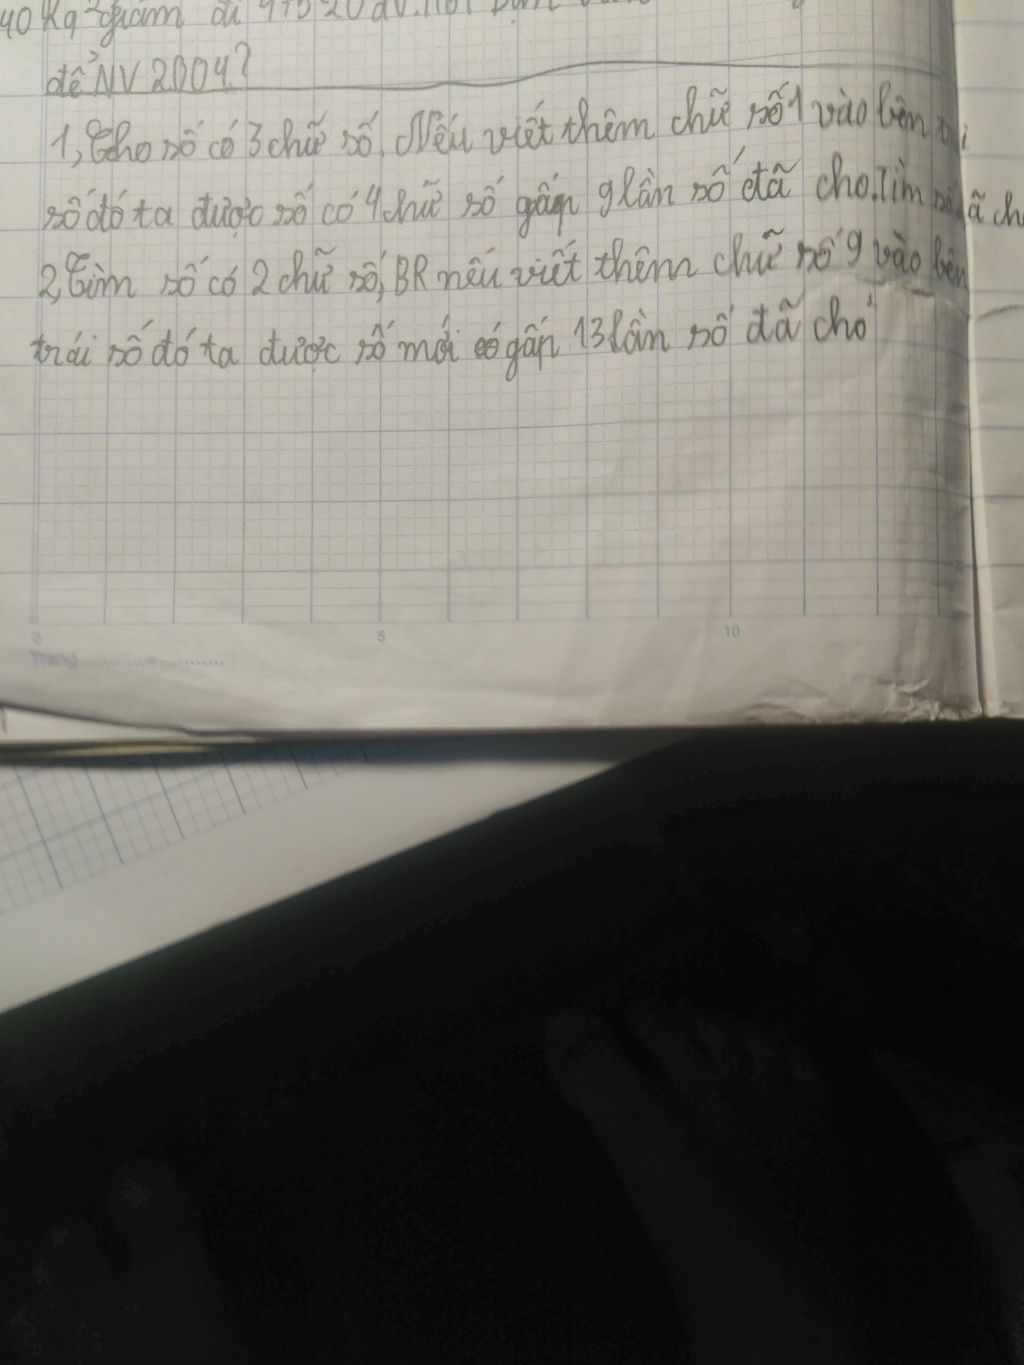 40 Kg giảm đi
để NV 2004?
1, Cho số có 3 chữ số. Nếu viết thêm chữ số 1 vào bên
số đó ta được số có 4 chữ số gấp 9 lần số đã cho. Tìm số đã cho
2, Tìm số có 2 chữ số, BR nếu viết thêm chữ số 9 vào bên
trái số đó ta được số mới có gấp 13 lần số đã cho
5
10
Trang